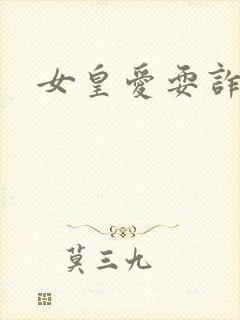 女皇愛耍詐
莫三九